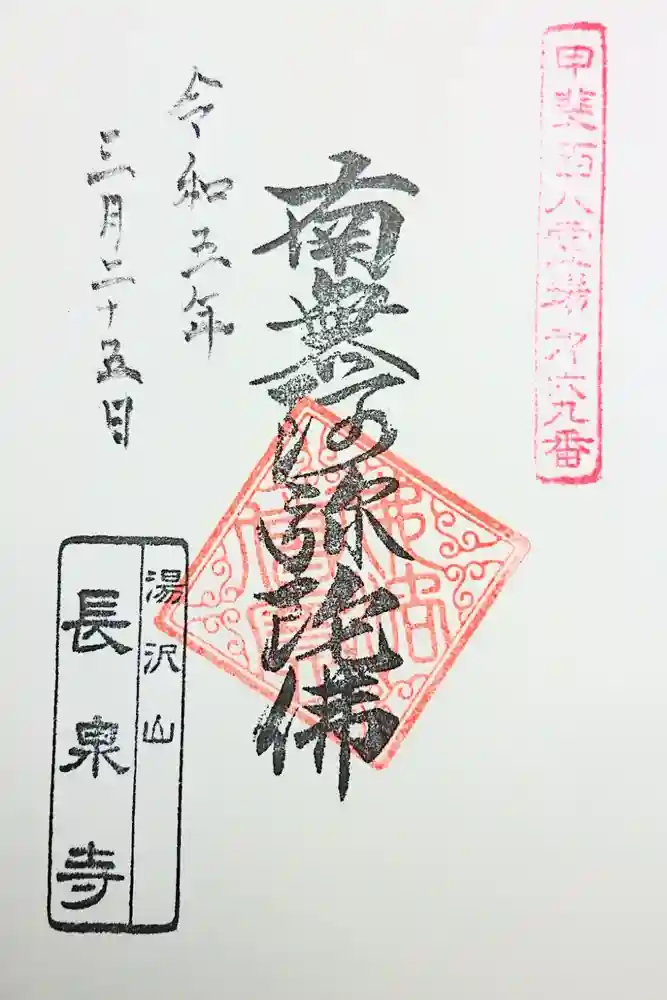 甲斐百八霊場第六九番
南無阿弥陀佛
令和五年
三月二十五日
湯沢山
長泉寺
佛法僧寶